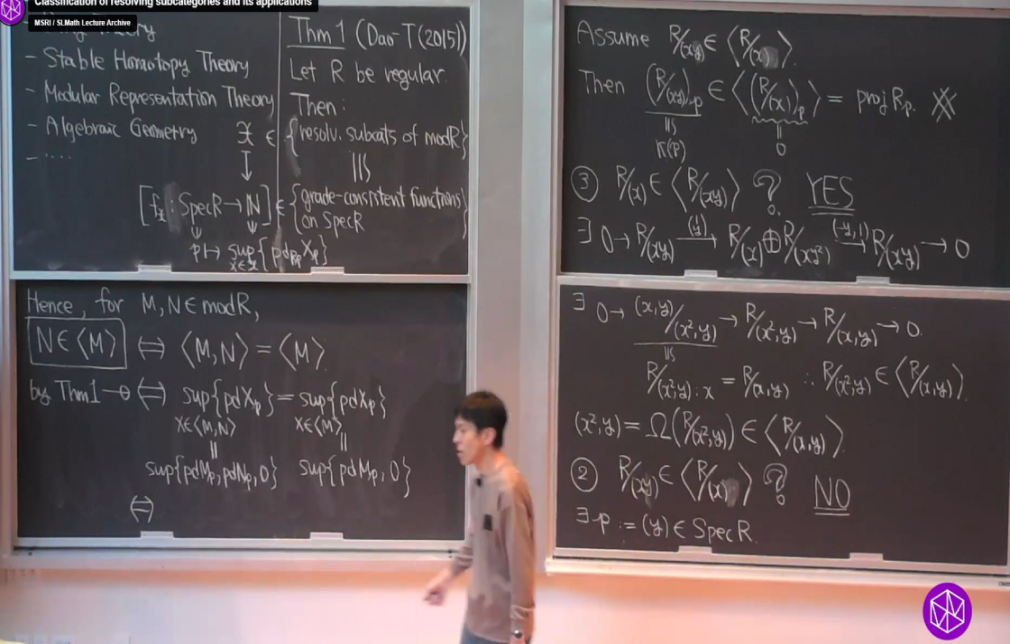 Classification of resolving subcategories and its applications
MSRI / SLMath Lecture Archive
- Stable Homotopy Theory
- Modular Representation Theory
- Algebraic Geometry
- ....
Thm 1 (Dao-T(2015))
Let R be regular.
Then:
𝒳 ∈ {resolv. subcats of modR}
[f_𝒳: SpecR → ℕ] ∈ {grade-consistent functions on SpecR}
p ↦ sup_{X∈𝒳}{pd_{R_p} X_p}
Hence, for M,N ∈ modR,
N∈⟨M⟩ ⇔ ⟨M,N⟩ = ⟨M⟩.
by Thm1 ⇔ sup{pdX_p} = sup{pdX_p}
X∈⟨M,N⟩ X∈⟨M⟩
|| ||
sup{pdM_p, pdN_p, 0} sup{pdM_p, 0}
⇔
Assume R/(xy) ∈ ⟨R/(x)⟩
Then (R/(xy))_p ∈ ⟨(R/(x))_p⟩ = proj R_p.
κ(p) 0
③ R/(x) ∈ ⟨R/(xy)⟩ ? YES
∃ 0 → R/(xy) → R/(x) ⊕ R/(xy²) (-y,1)→ R/(xy) → 0
∃ 0 → (x,y)/(x²,y) → R/(x²,y) → R/(x,y) → 0.
R/(x²,y):x = R/(x,y) ∴ R/(x²,y) ∈ ⟨R/(x,y)⟩
(x²,y) = Ω(R/(x²,y)) ∈ ⟨R/(x,y)⟩.
② R/(xy) ∈ ⟨R/(x)⟩ ? NO
∃ p := (y) ∈ SpecR.